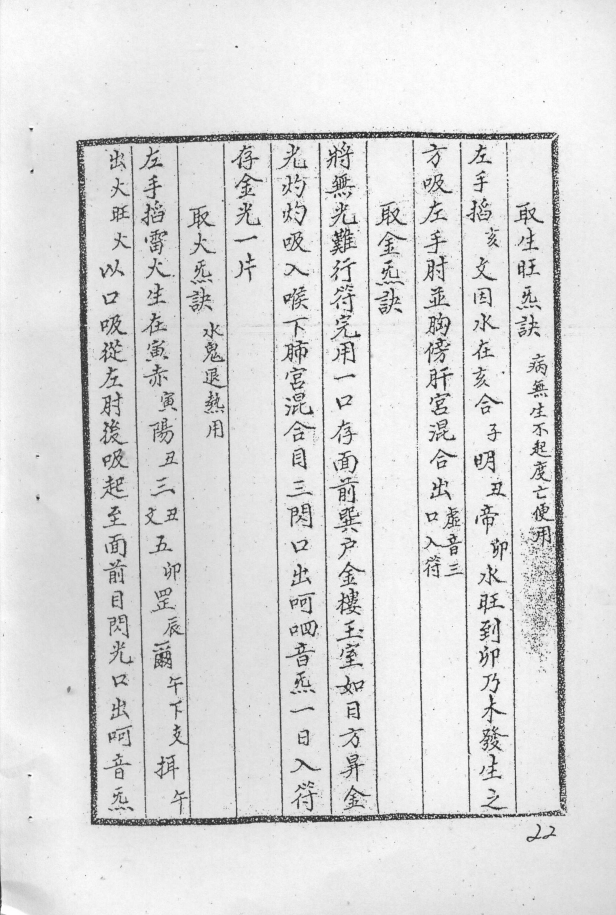 取生旺炁訣 病無生不起度亡便用
左手掐亥文因水在亥合子明丑帝卯水旺到卯乃木發生之
方吸左手肘並胸傍肝宮混合出虛音三口入符
取金炁訣
將無光難行符完用一口存面前巽户金樓玉室如日方昇金
光灼灼吸入喉下肺宮混合目三閃口出呵呬音炁一日入符
存金光一片
取火炁訣 水鬼退熱用
左手掐雷火生在寅赤寅陽丑三丑文五卯罡辰薾午下支揖午
出火旺火以口吸從左肘後吸起至面前目閃光口出呵音炁
22